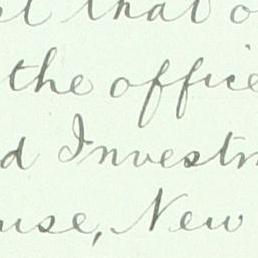 that
the office
d Investm
use, New